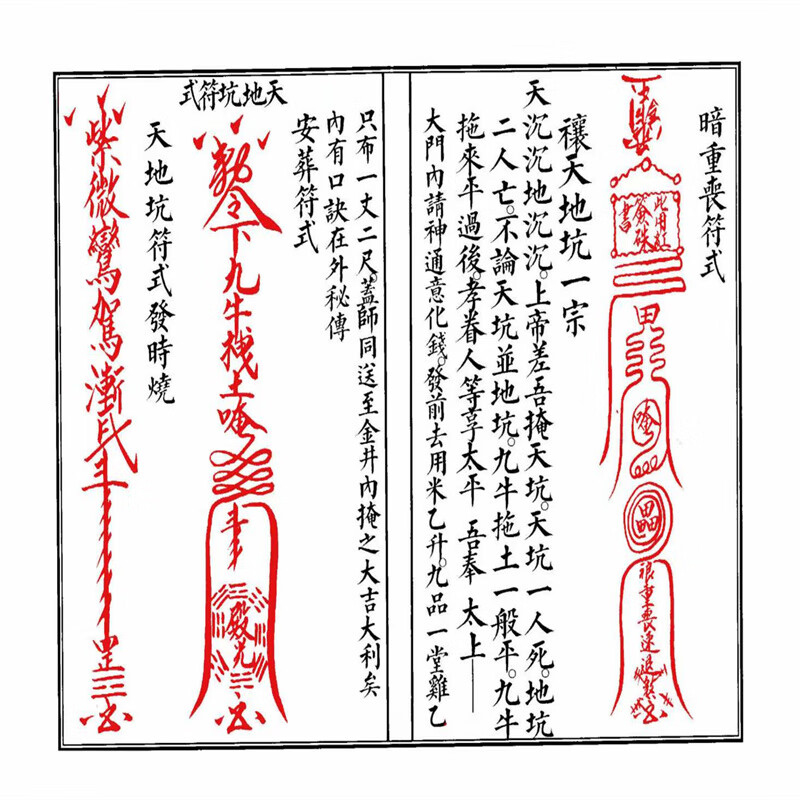 暗重喪符式
田
唵
重喪速退
禳天地坑一宗
天沉沉地沉沉。上帝差吾掩天坑。天坑一人死。地坑
二人亡。不論天坑並地坑。九牛拖土一般平。九牛
拖來平過後。孝眷人等享太平 吾奉 太上——
大門內請神通意化錢。發前去用米乙升。九品一堂雞乙
只布一丈二尺。蓋師同送至金井內掩之大吉大利矣
內有口訣在外秘傳
安葬符式
天地坑符式
敕令下九牛拽土唵
殿光
天地坑符式發時燒
紫微鸞駕
罡